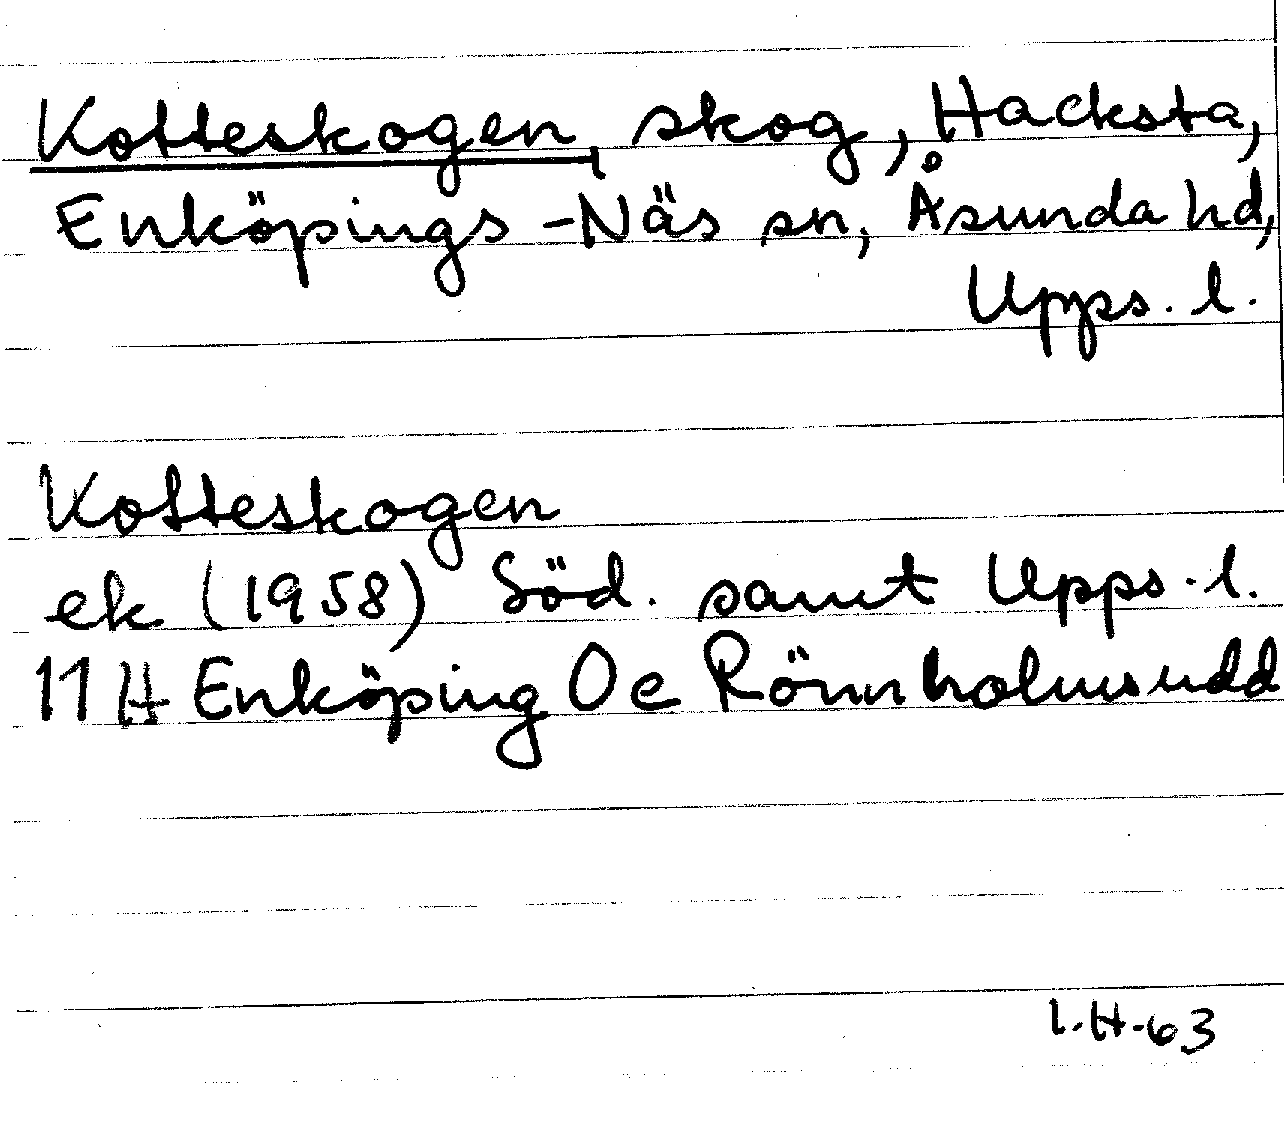 Kotteskogen, skog, Hacksta,
Enköpings-Näs sn, Åsunda hd,
Upps. l.
Kotteskogen
ek (1958) Söd. samt Upps. l.
11 H Enköping Oe Rönnholmsudd
I.H-63